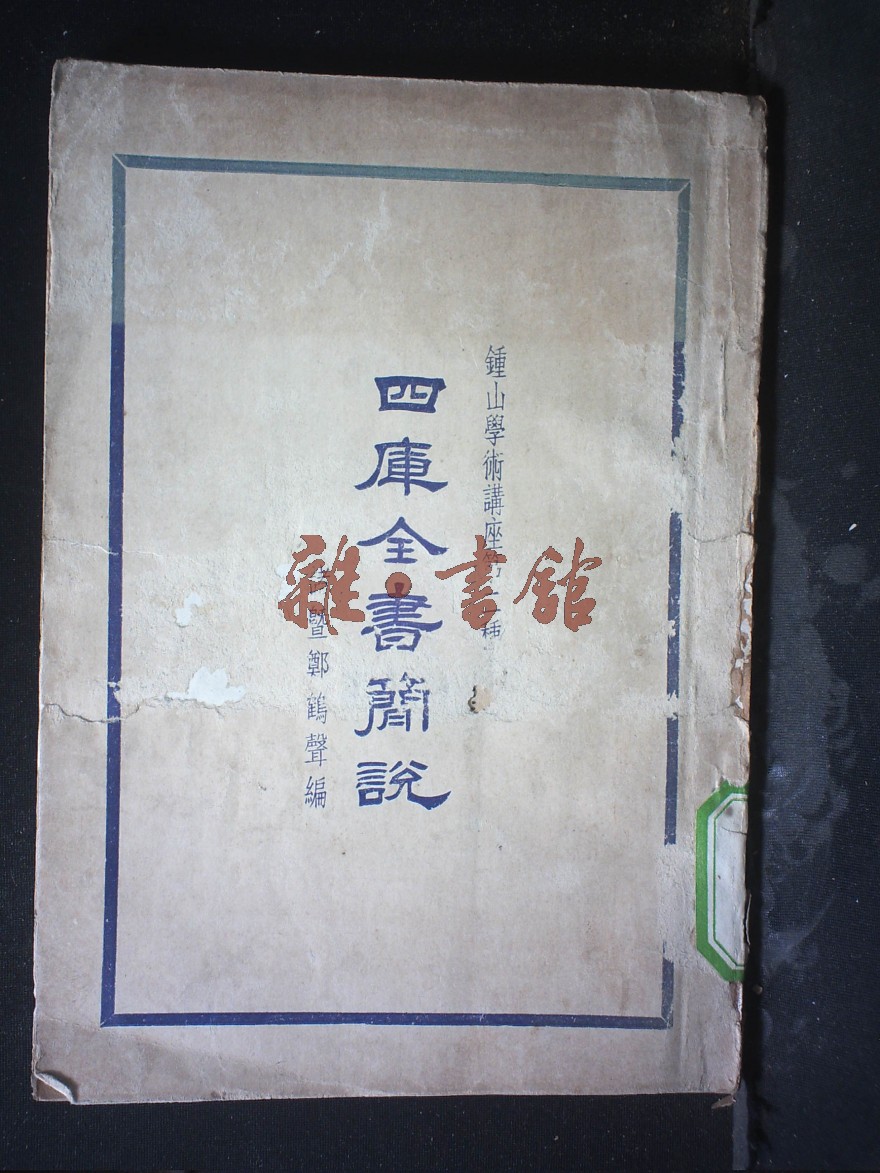 鍾山學術講座第二種
四庫全書簡說
諸暨鄭鶴聲編
雜·書館